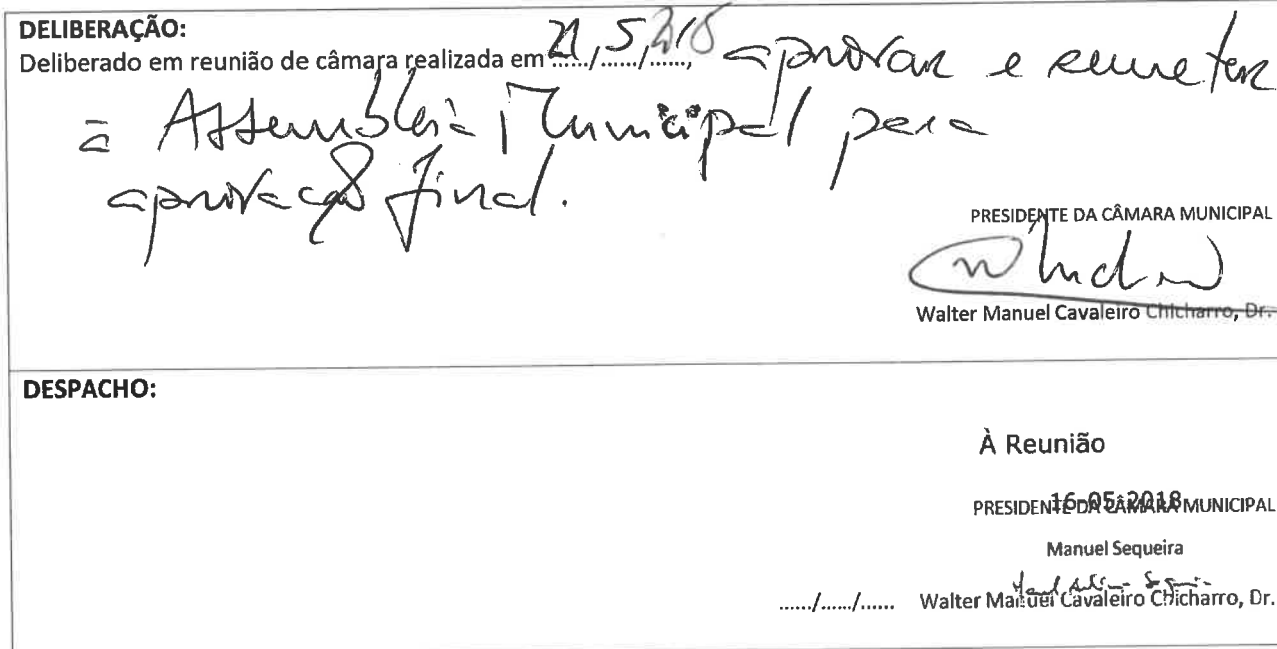 DELIBERAÇÃO:
Deliberado em reunião de câmara realizada em 21/5/2018, aprovar e remeter
à Assembleia Municipal para
aprovação final.
PRESIDENTE DA CÂMARA MUNICIPAL
Walter Manuel Cavaleiro Chicharro, Dr.
DESPACHO:
À Reunião
16-05-2018
PRESIDENTE DA CÂMARA MUNICIPAL
Manuel Sequeira
....../....../...... Walter Manuel Cavaleiro Chicharro, Dr.